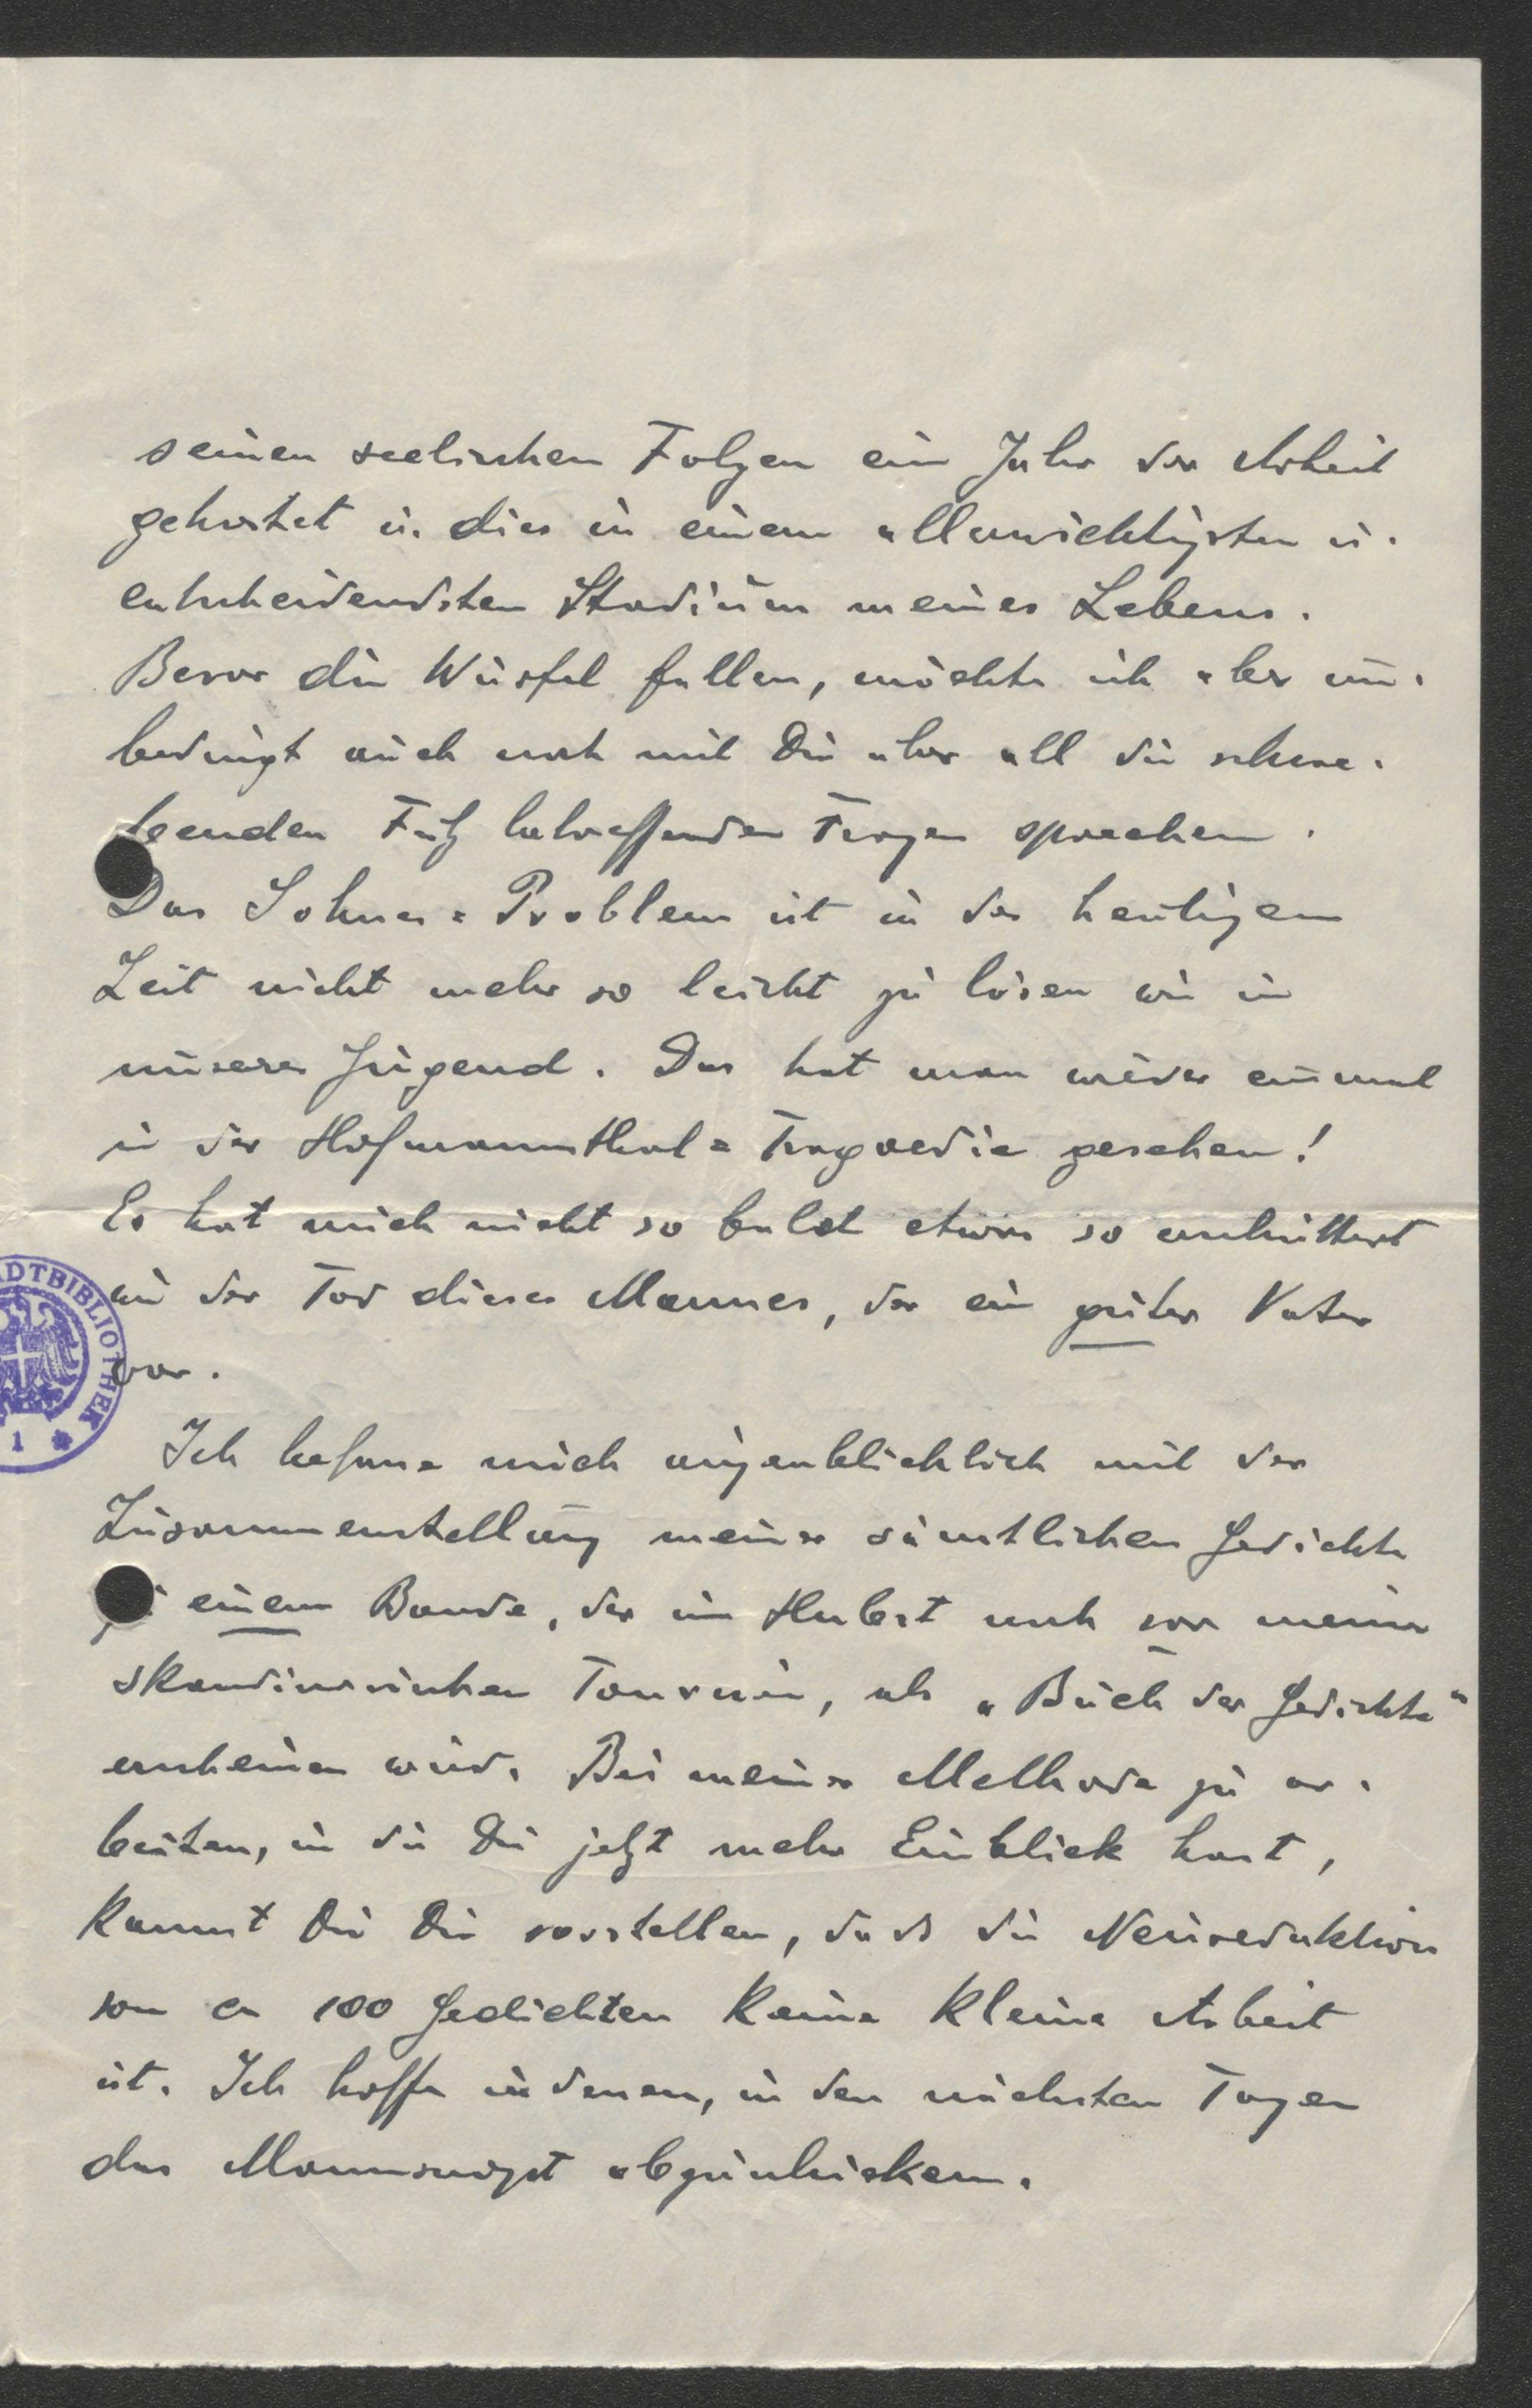 seinen seelischen Folgen ein Jahr der Arbeit
gekostet u. dies in einem allerwichtigsten u.
entscheidendsten Stadium meines Lebens.
Bevor die Würfel fallen, möchte ich aber un-
bedingt auch noch mit Dir über all die schwe-
benden Fritz betreffenden Fragen sprechen.
Das Sohnes-Problem ist in der heutigen
Zeit nicht mehr so leicht zu lösen wie in
unserer Jugend. Das hat man wieder einmal
in der Hofmannsthal-Tragoedie gesehen!
Es hat mich nicht so bald etwas so erschüttert
wie der Tod dieses Mannes, der ein guter Vater
war.
Ich befasse mich augenblicklich mit der
Zusammenstellung meiner sämtlichen Gedichte
zu einem Bande, der im Herbst noch vor meiner
skandinavischen Tournée, als „Buch der Gedichte"
erscheinen wird. Bei meiner Methode zu ar-
beiten, in die Du jetzt mehr Einblick hast,
kannst Du Dir vorstellen, dass die Neuredaktion
von ca 100 Gedichten keine kleine Arbeit
ist. Ich hoffe indessen, in den nächsten Tagen
das Manuscript abzuschicken.
ADTBIBLIOTHEK
1 *